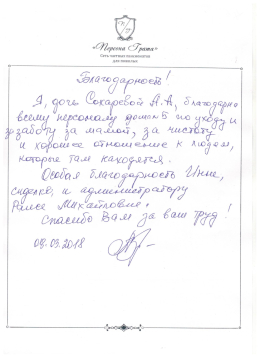 «Перваяː Гранжъ»
Сеть частных пансионатов
для пожилых
Благодарность!
Я, дочь Сохаревой А.А, благодарю
всему персоналу домой 5 по уходу и
за заботу за мамой, за чистоту
и хорошее отношение к людям,
которые там находятся.
Особая благодарность Инне,
сиделке, и администратору
Раисе Михайловне.
Спасибо Вам за ваш труд!
09.03.2018